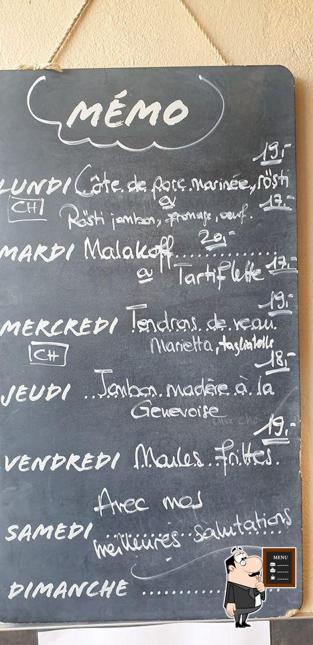 MÉMO
19.-
LUNDI Côte de porc marinée, rösti
CH ou 17.-
Rösti jambon, fromage, oeuf.
20.-
MARDI Malakoff
ou Tartiflette 17.-
19.-
MERCREDI Tendrons de veau
CH Marietta, tagliatelle
18.-
JEUDI Jambon madère à la
Genevoise
19.-
VENDREDI Moules frittes
Avec mes
SAMEDI meilleures salutations
DIMANCHE
MENU